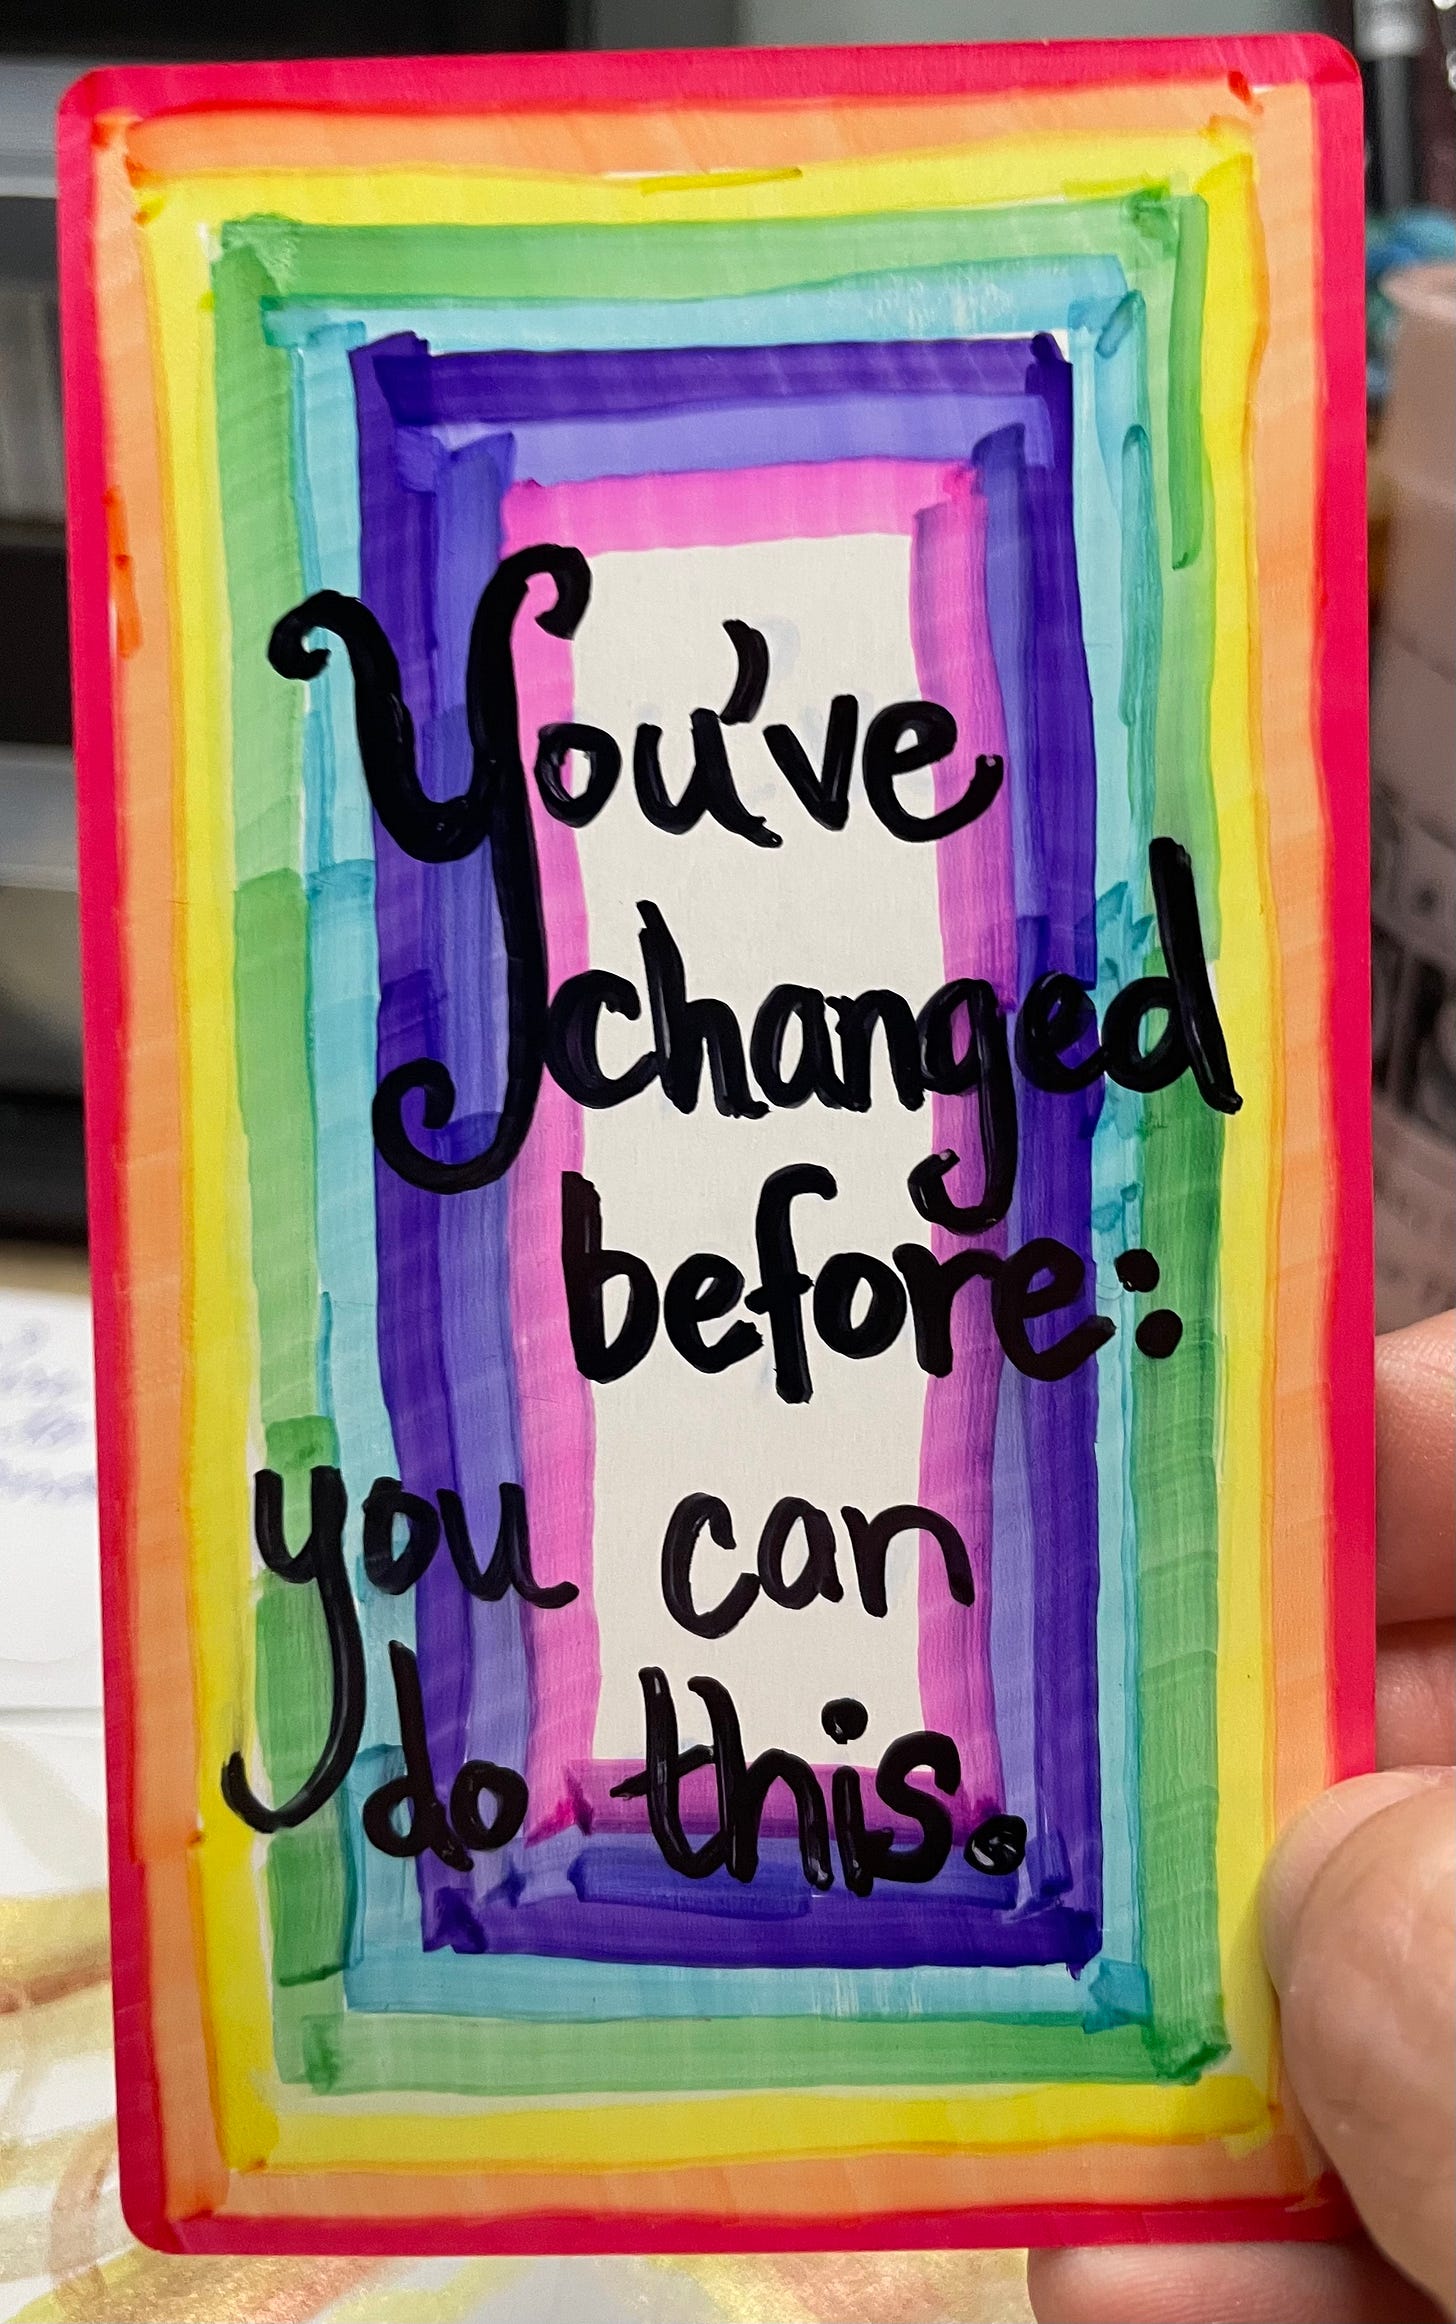 You've
changed
before:
you can
do this.